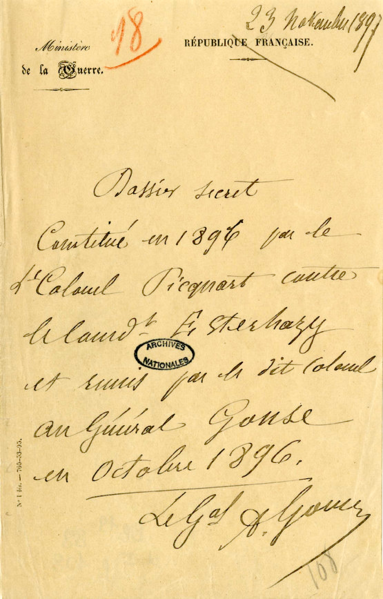 23 Novembre 1897
18
Ministère
de la Guerre.
RÉPUBLIQUE FRANÇAISE.
Dossier secret
Constitué en 1896 par le
Lt Colonel Picquart contre
le Comdt Esterhazy
et remis par le dit Colonel
au Général Gonse
en Octobre 1896.
Le Gal A. Gonse
ARCHIVES
NATIONALES
108